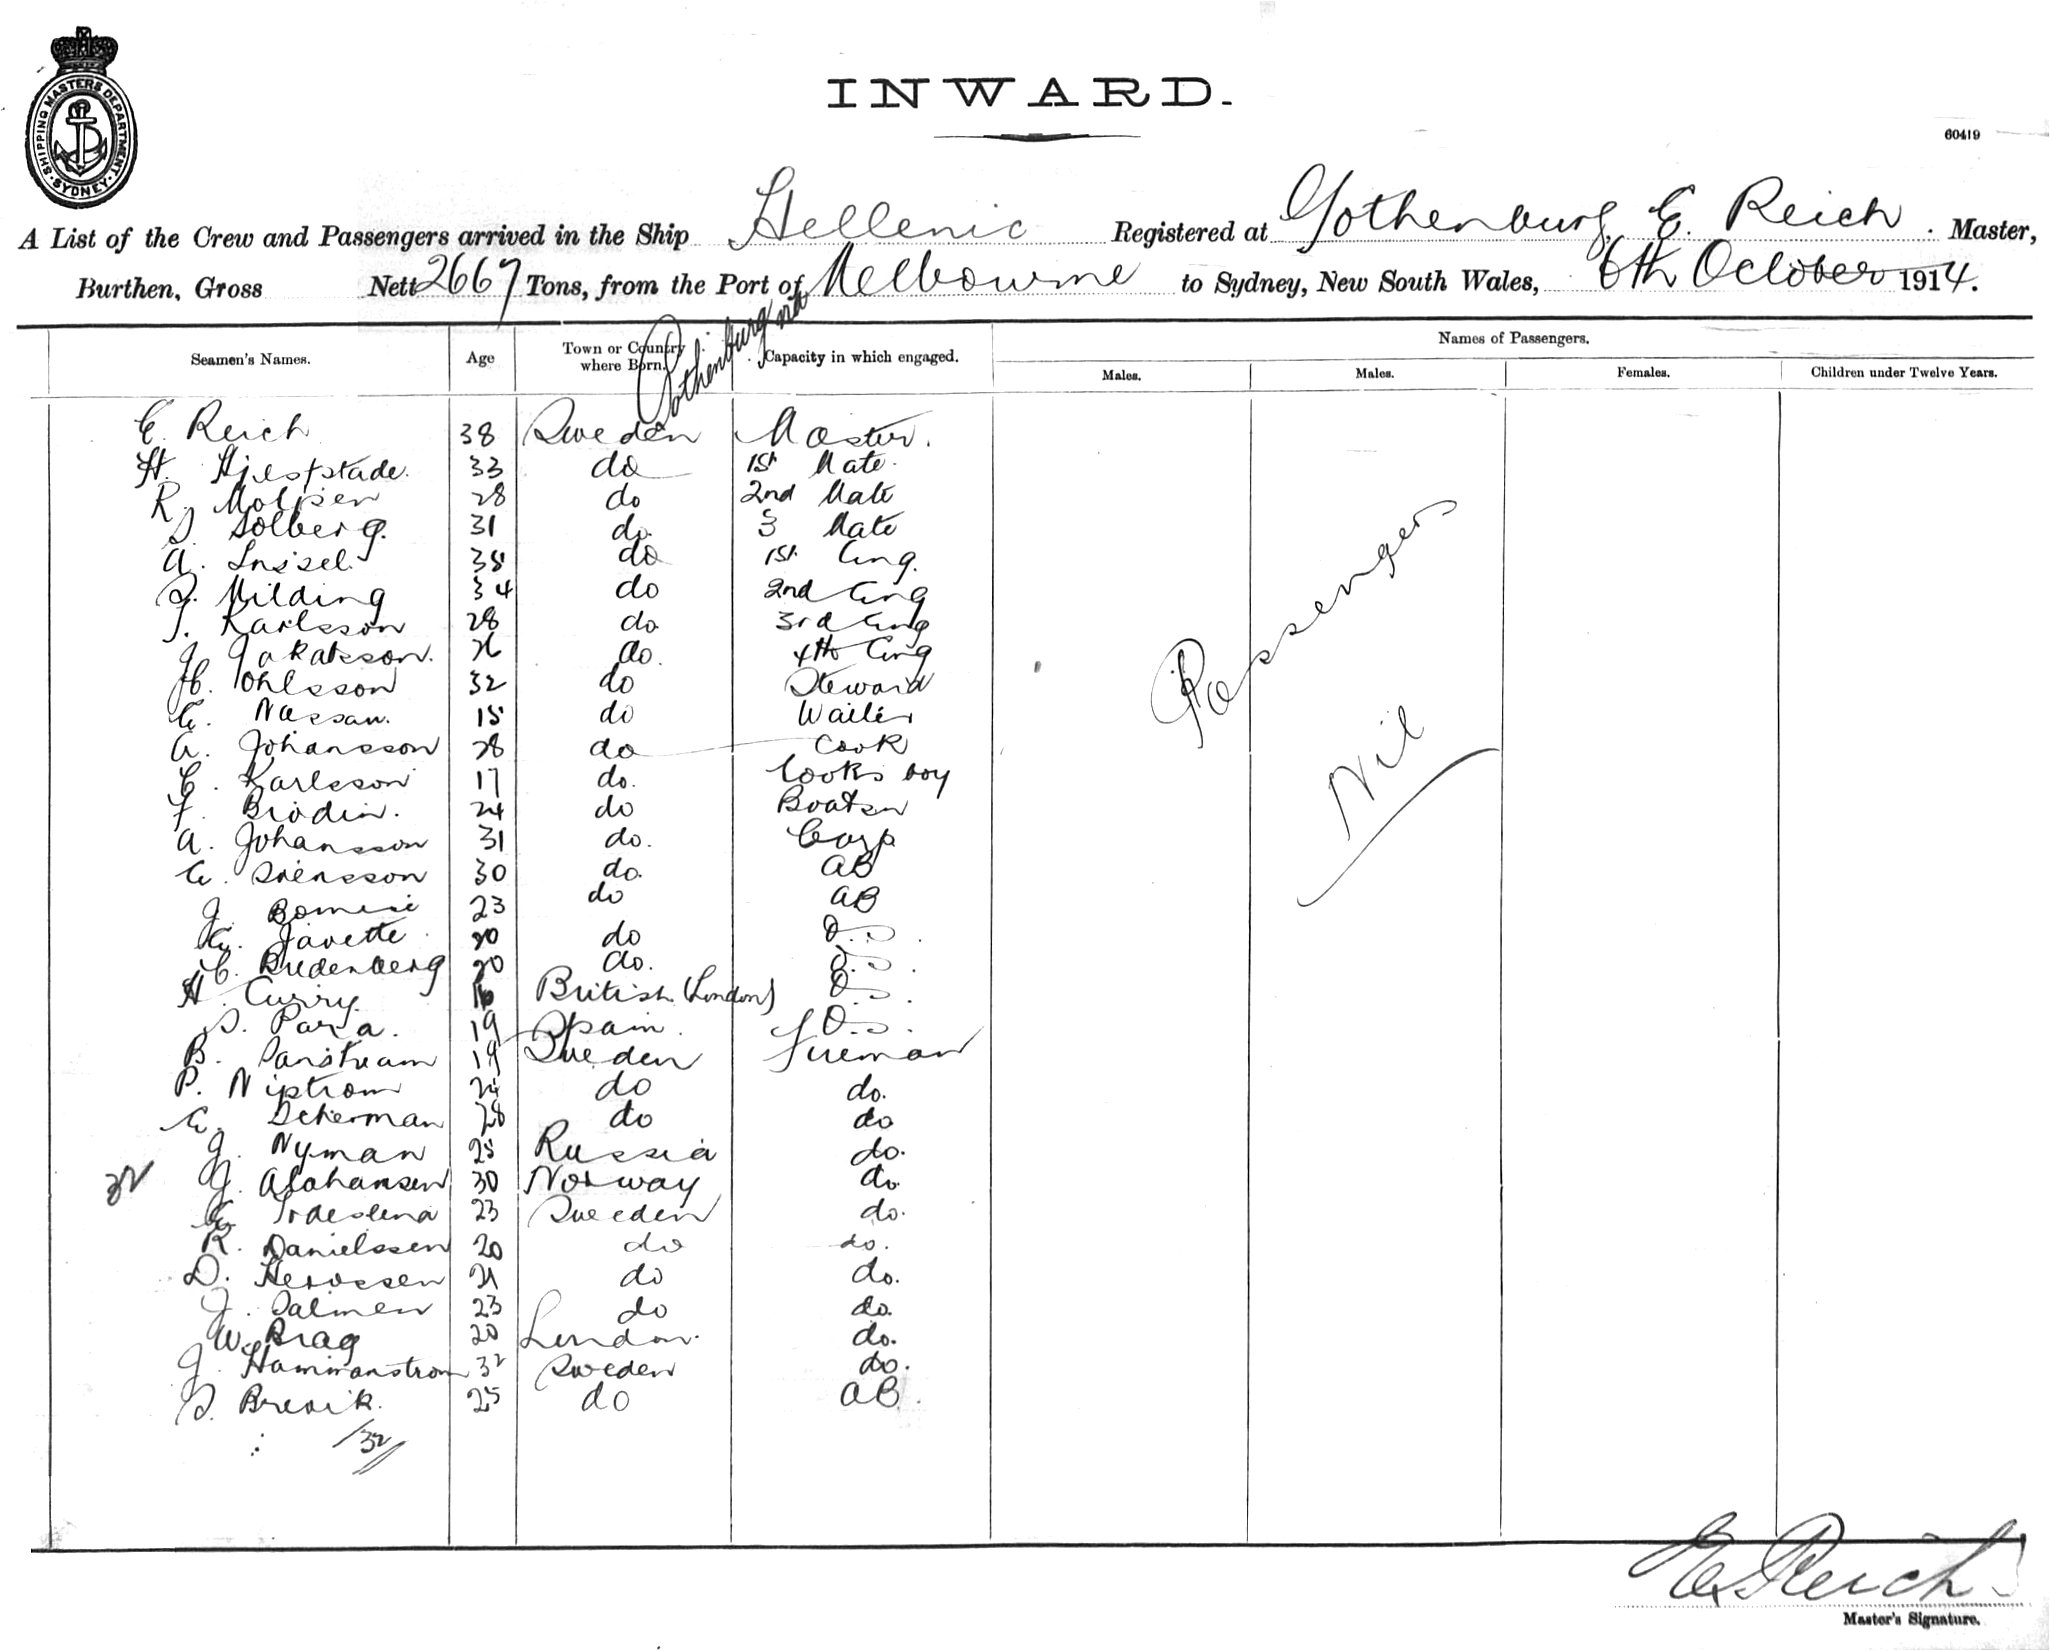 INWARD.
60419
SHIPPING MASTERS DEPARTMENT
SYDNEY
A List of the Crew and Passengers arrived in the Ship Hellenic Registered at Gothenburg, E. Reich Master,
Burthen, Gross Nett 2667 Tons, from the Port of Melbourne to Sydney, New South Wales, 6th October 1914.
Seamen's Names. Age Town or Country where Born. Capacity in which engaged. Names of Passengers.
Males. Males. Females. Children under Twelve Years.
Gothenburg
E. Reich 38 Sweden Master.
H. 33 do 1st Mate.
R. 28 do 2nd Mate
Solberg. 31 do. 3 Mate
A. 38 do 1st Eng.
Milding 34 do 2nd Eng
Karlsson 28 do 3rd Eng
J. 26 do. 4th Eng
H. Ohlsson 32 do Steward
E. Nassau. 15 do Waiter
A. Johansson 28 do Cook
E. Karlsson 17 do. Cooks boy
F. Brodin. 24 do Boatsn
A. Johansson 31 do. Carp
E. Svensson 30 do. AB
J. 23 do AB
20 do O.S.
Bredenberg 20 do. O.S.
H. Curry. 16 British (London) O.S.
Para. 19 Spain. O.S.
B. 19 Sweden Fireman
P. Nistrom 24 do do.
E. 28 do do
J. Nyman 25 Russia do.
32
30 Norway do.
E. 23 Sweden do.
R. Danielssen 20 do do.
D. 21 do do.
J. Salmen 23 do do.
W. Brag 20 London. do.
J. Hammanstrom 32 Sweden do.
Brevik. 25 do AB.
32
Passengers
Nil
E. Reich
Master's Signature.